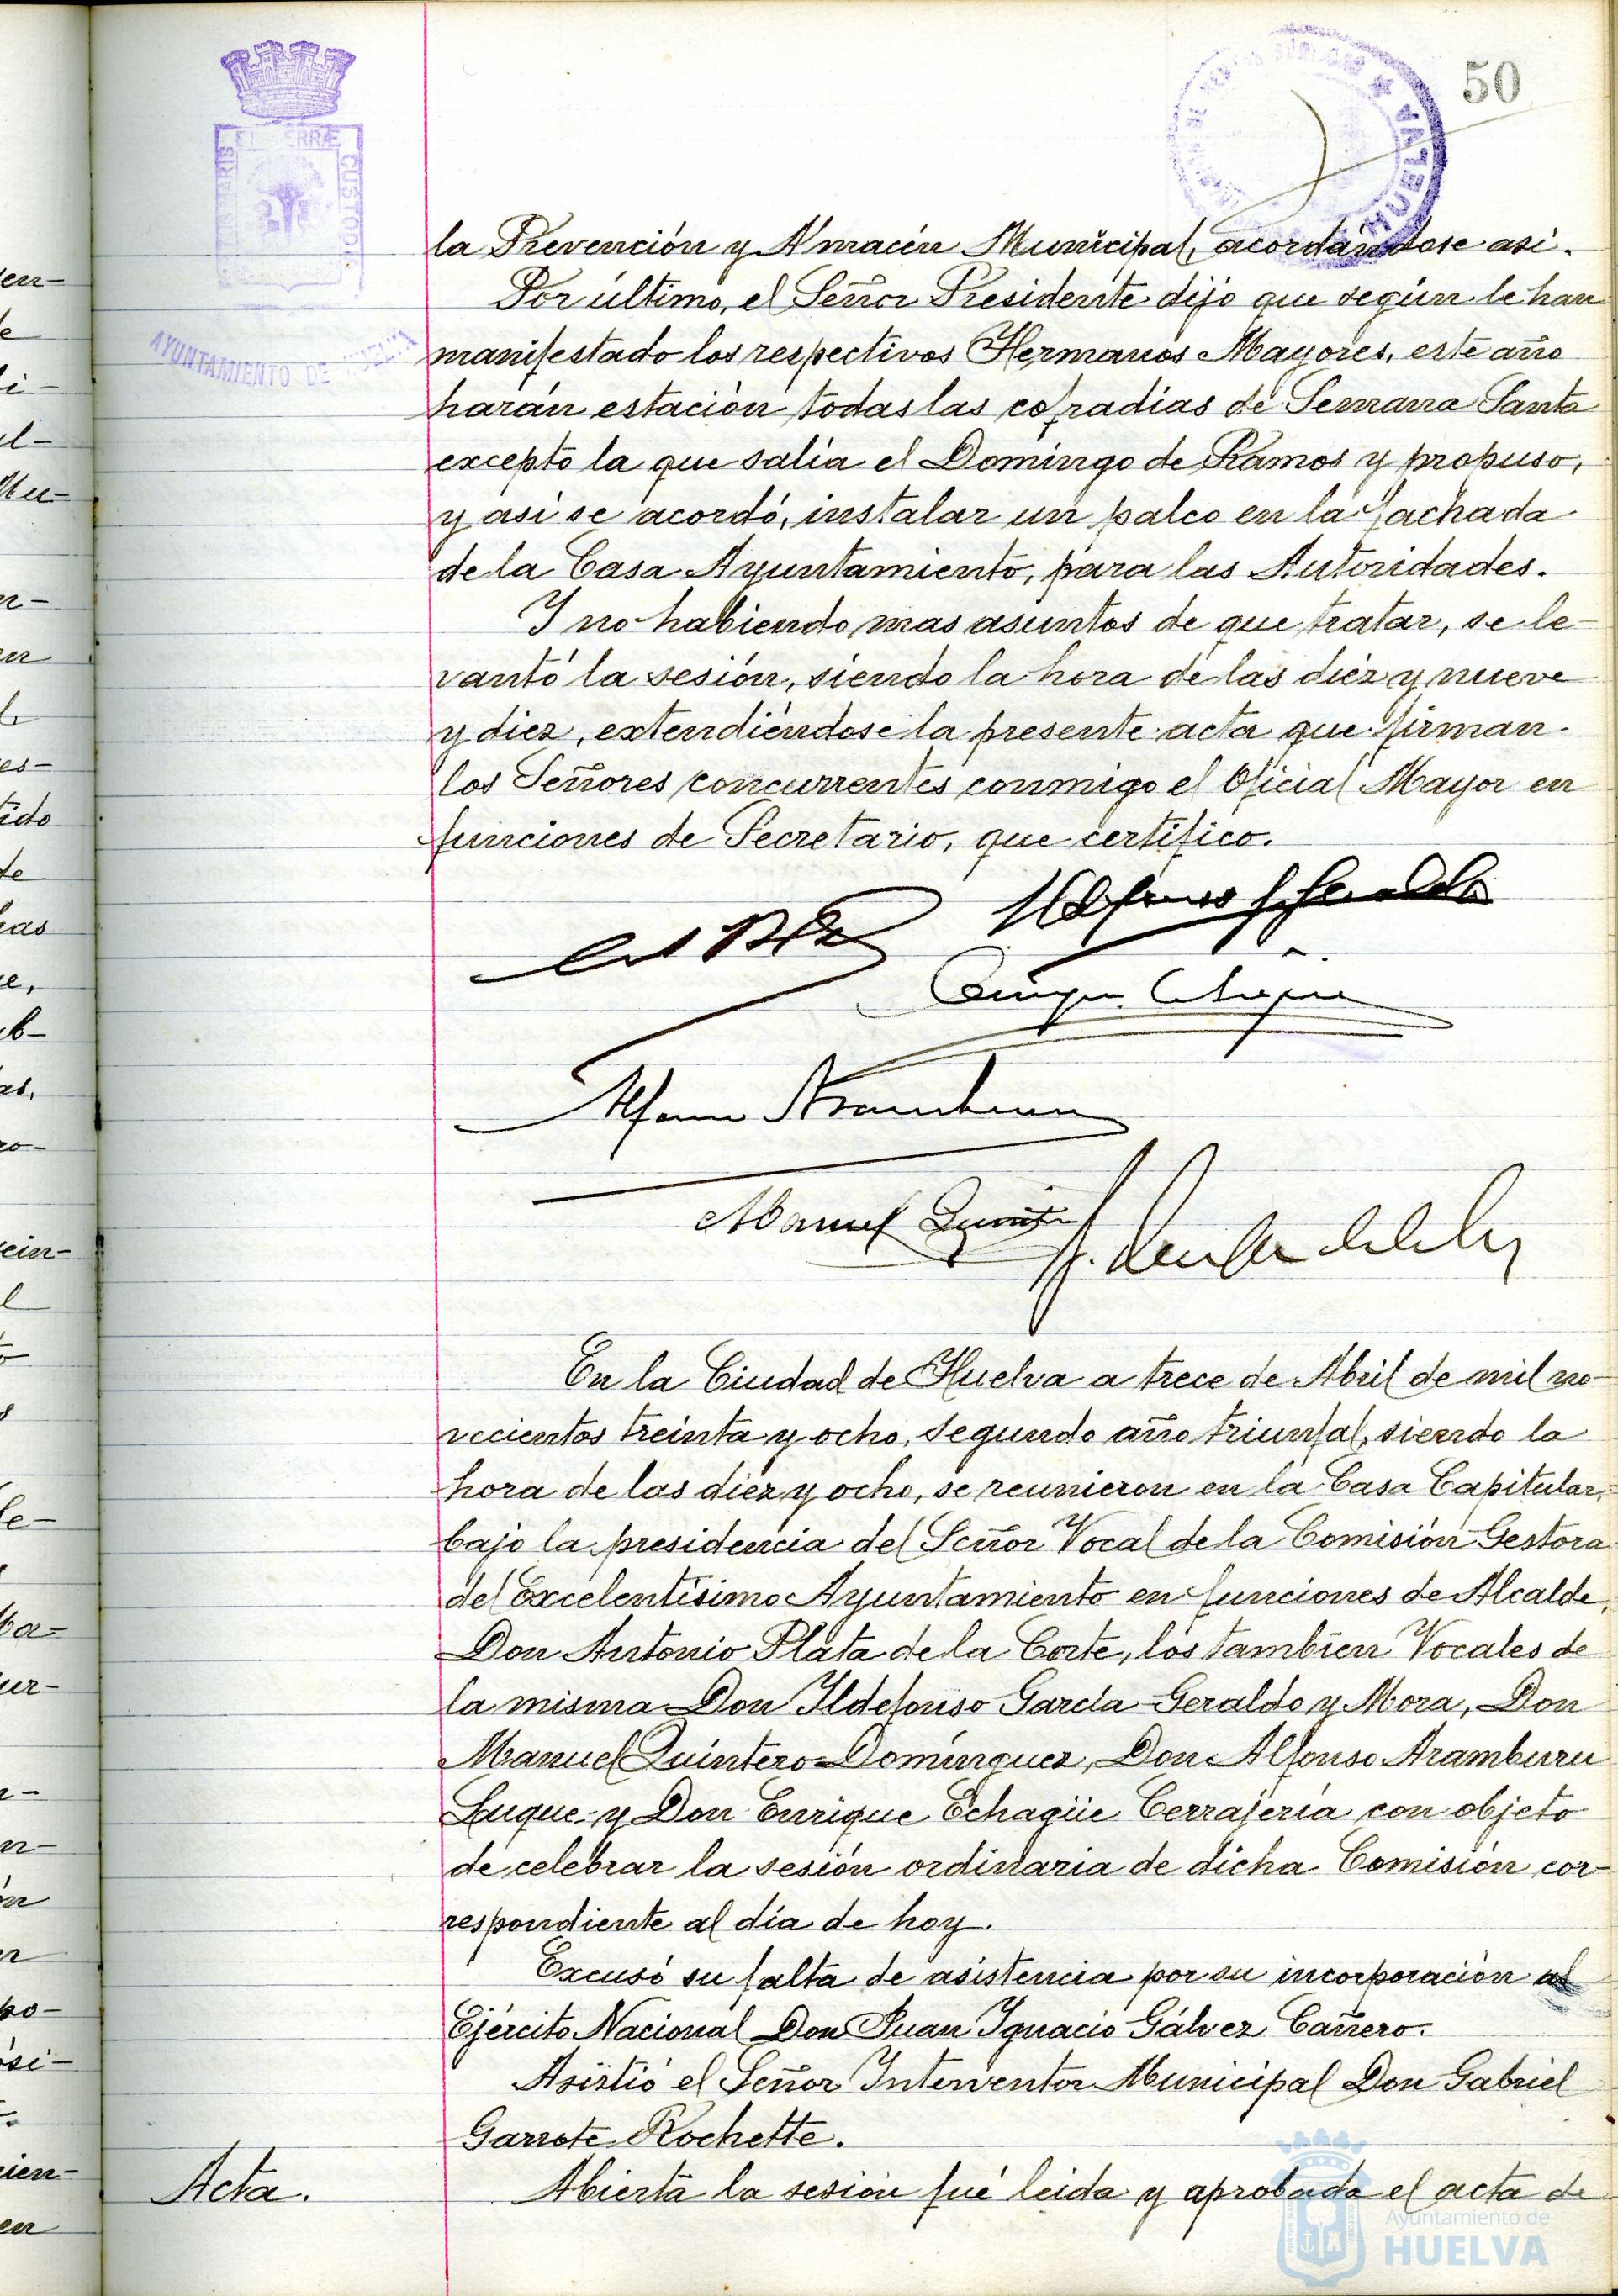 50
HUELVA
AYUNTAMIENTO DE
CUSTODIA
la Prevención y Almacén Municipal, acordándose así.
Por último, el Señor Presidente dijo que según le han
manifestado los respectivos Hermanos Mayores, este año
harán estación todas las cofradías de Semana Santa
excepto la que salía el Domingo de Ramos y propuso,
y así se acordó, instalar un palco en la fachada
de la Casa Ayuntamiento, para las Autoridades.
Y no habiendo mas asuntos de que tratar, se le-
vantó la sesión, siendo la hora de las diéz y nueve
y diez, extendiéndose la presente acta que firman
los Señores concurrentes conmigo el Oficial Mayor en
funciones de Secretario, que certifico.
Manuel
En la Ciudad de Huelva a trece de Abril de mil no-
vecientos treinta y ocho, segundo año triunfal, siendo la
hora de las diez y ocho, se reunieron en la Casa Capitular,
bajo la presidencia del Señor Vocal de la Comisión Gestora
del Excelentísimo Ayuntamiento en funciones de Alcalde,
Don Antonio Plata de la Corte, los también Vocales de
la misma Don Ildefonso García-Geraldo y Mora, Don
Manuel Quintero Domínguez, Don Alfonso Aramburu
Luque y Don Enrique Echagüe Cerrajería con objeto
de celebrar la sesión ordinaria de dicha Comisión cor-
respondiente al día de hoy.
Excusó su falta de asistencia por su incorporación al
Ejército Nacional Don Juan Ignacio Gálvez Cañero.
Asistió el Señor Interventor Municipal Don Gabriel
Garrote Rochette.
Acta.
Abierta la sesión fué leida y aprobada el acta de
Ayuntamiento de
HUELVA